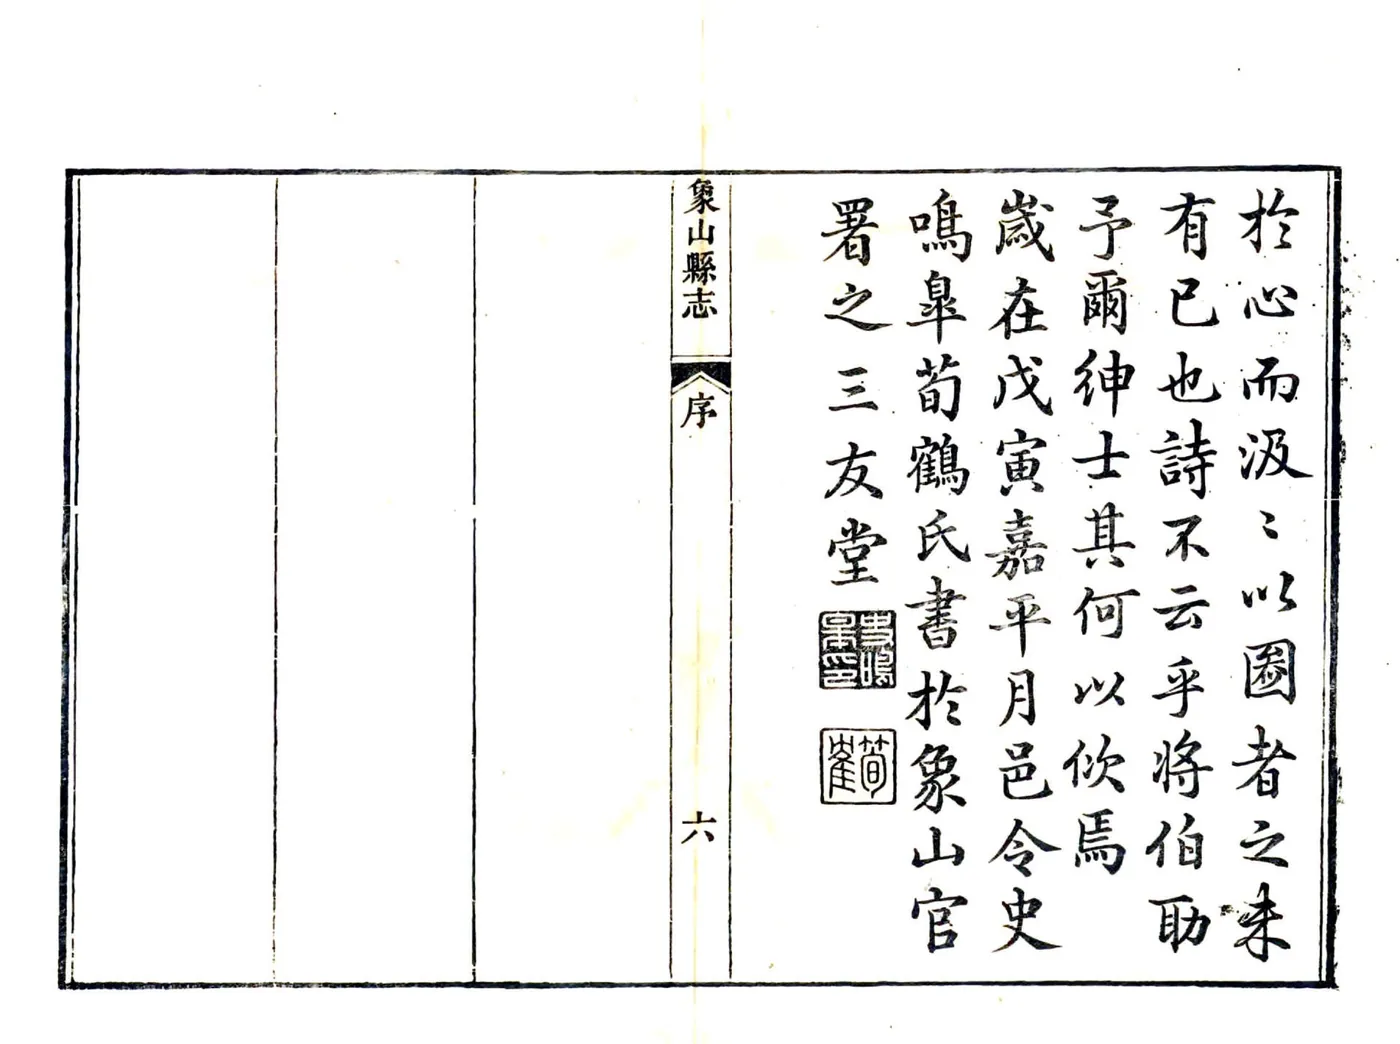 於心而汲〻以圖者之未
有已也詩不云乎將伯助
予爾紳士其何以佽焉
歲在戊寅嘉平月邑令史
鳴皐荀鶴氏書於象山官
署之三友堂
史鳴皋印
荀隺
象山縣志
序
六